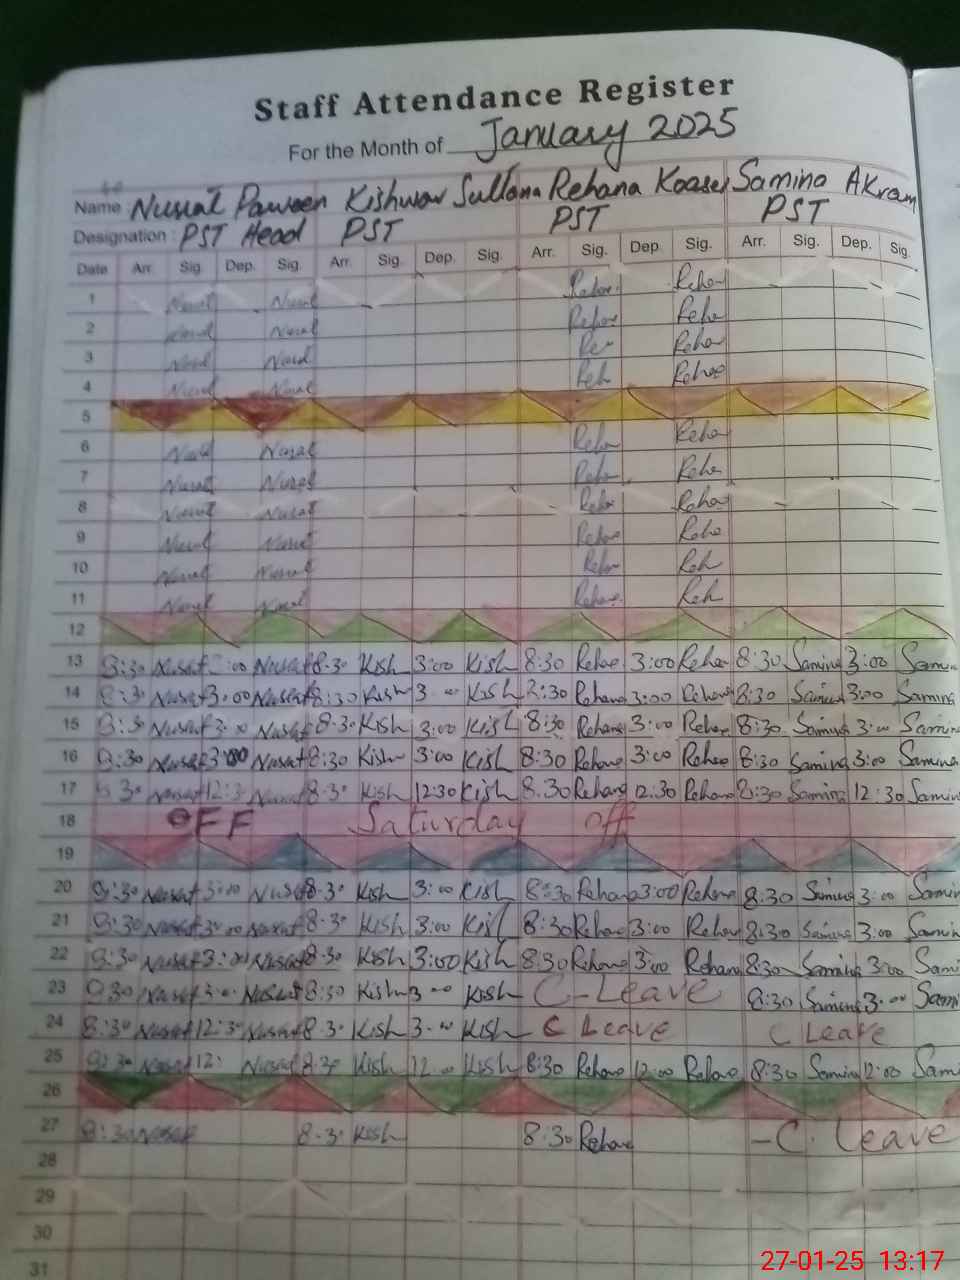 Staff Attendance Register
For the Month of January 2025
Name Nusrat Parveen Kishwar Sultana Rehana Koaser Samina Akram
Designation : PST Head PST PST PST
Date Arr. Sig. Dep. Sig. Arr. Sig. Dep. Sig. Arr. Sig. Dep. Sig. Arr. Sig. Dep. Sig.
1 Nusrat Nusrat Rehan Reha
2 Nusrat Nusrat Rehane Reha
3 Nusrat Nusrat Re Reha
4 Nusrat Nusrat Reh Rehae
5
6 Nusrat Nusrat Reha Reha
7 Nusrat Nusrat Reha Reha
8 Nusrat Nusrat Reha Reha
9 Nusrat Nusrat Rehae Reha
10 Nusrat Nusrat Reha Reh
11 Nusrat Nusrat Rehane Reh
12
13 8:30 Nusrat 3:00 Nusrat 8:30 Kish 3:00 Kish 8:30 Rehae 3:00 Rehae 8:30 Samina 3:00 Samin
14 8:30 Nusrat 3:00 Nusrat 8:30 Kish 3:00 Kish 8:30 Rehana 3:00 Rehana 8:30 Samina 3:00 Samina
15 8:30 Nusrat 3:00 Nusrat 8:30 Kish 3:00 Kish 8:30 Rehana 3:00 Rehae 8:30 Samina 3:00 Samin
16 8:30 Nusrat 3:00 Nusrat 8:30 Kish 3:00 Kish 8:30 Rehana 3:00 Rehae 8:30 Samina 3:00 Samina
17 8:30 Nusrat 12:30 Nusrat 8:30 Kish 12:30 Kish 8:30 Rehana 12:30 Rehana 8:30 Samina 12:30 Samin
18 OFF Saturday off
19
20 8:30 Nusrat 3:00 Nusrat 8:30 Kish 3:00 Kish 8:30 Rehana 3:00 Rehana 8:30 Samina 3:00 Samin
21 8:30 Nusrat 3:00 Nusrat 8:30 Kish 3:00 Kish 8:30 Rehana 3:00 Rehana 8:30 Samina 3:00 Samin
22 8:30 Nusrat 3:00 Nusrat 8:30 Kish 3:00 Kish 8:30 Rehana 3:00 Rehana 8:30 Samina 3:00 Sami
23 8:30 Nusrat 3:00 Nusrat 8:30 Kish 3:00 Kish C-Leave 8:30 Samina 3:00 Sami
24 8:30 Nusrat 12:30 Nusrat 8:30 Kish 3:00 Kish C Leave C Leave
25 8:30 Nusrat 12: Nusrat 8:30 Kish 12:00 Kish 8:30 Rehana 12:00 Rehane 8:30 Samina 12:00 Sami
26
27 8:30 Nusrat 8:30 Kish 8:30 Rehane -C. Leave
28
29
30
31
27-01-25 13:17